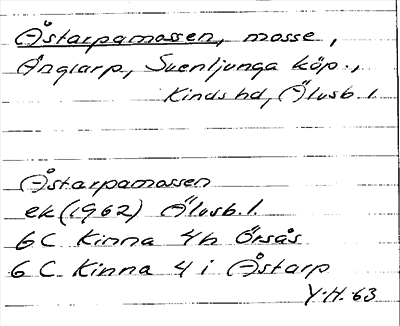 Åstarpamossen, mosse,
Änglarp, Svenljunga köp.,
Kinds hd, Älvsb. l.
Åstarpamossen
ek (1962) Älvsb. l.
6 C Kinna 4h Örsås
6 C Kinna 4 i Åstarp
Y.H. 63